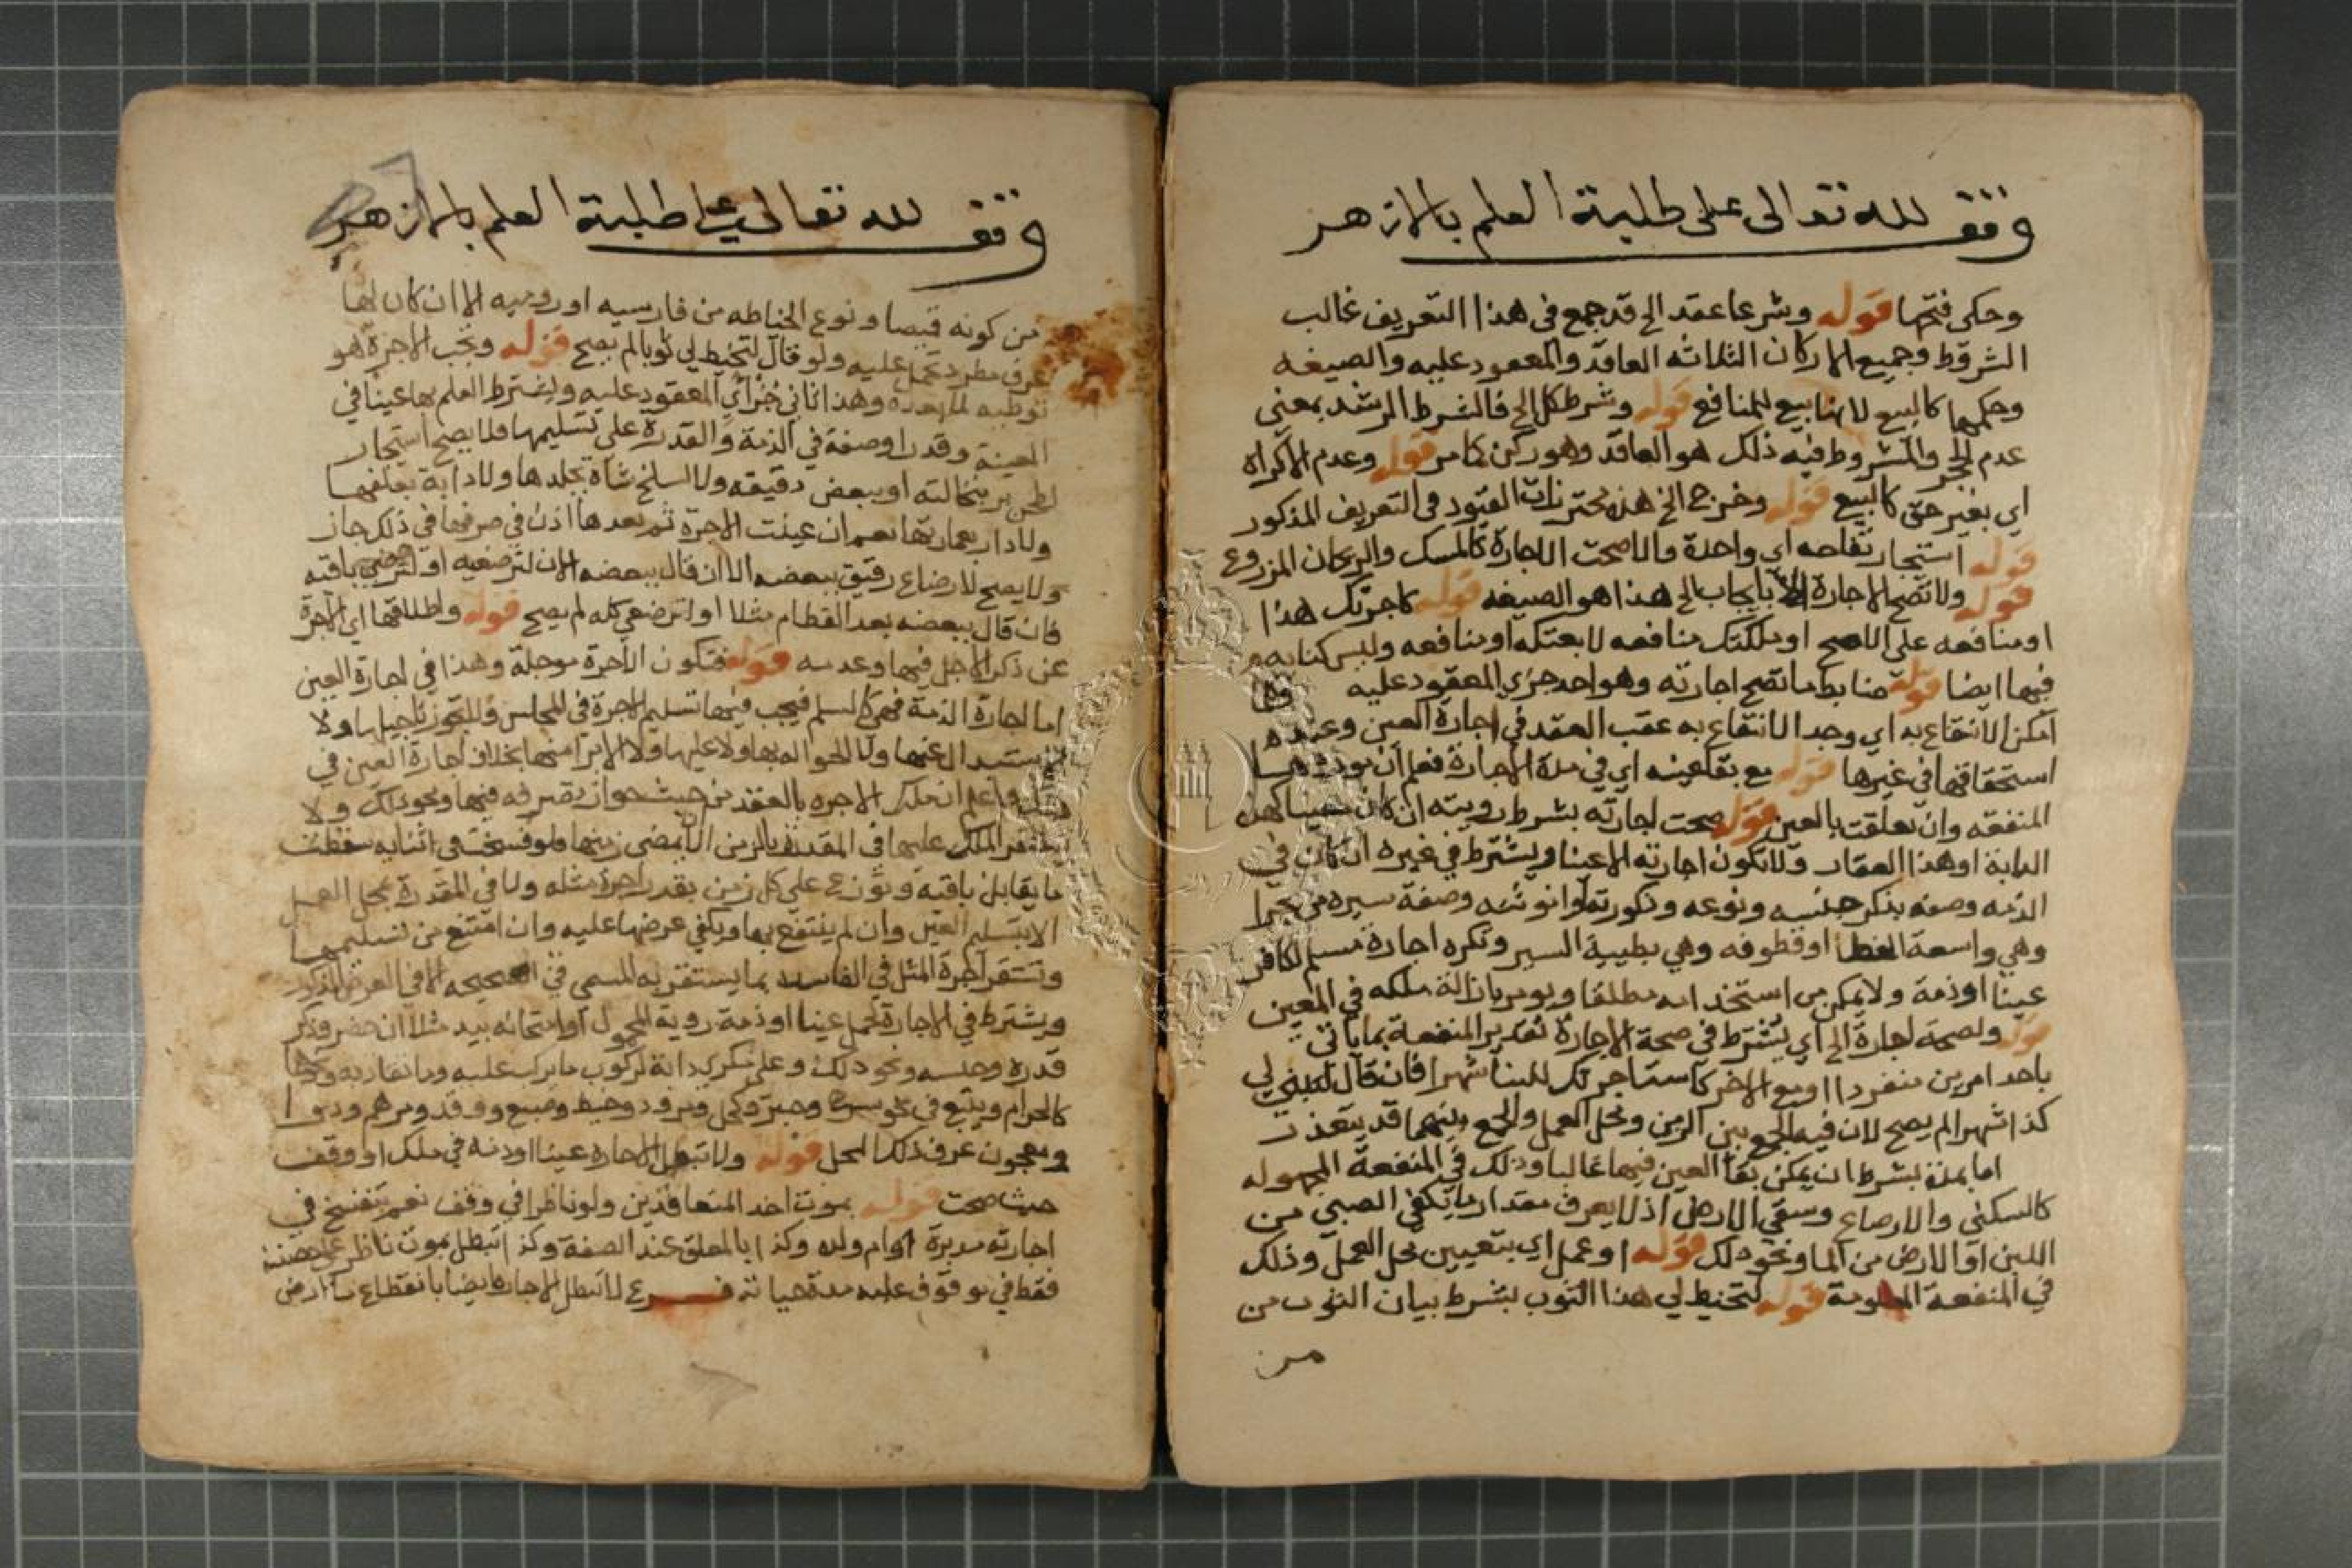 وقف لله تعالى على طلبة العلم بالازهر
وحكى فتحها قوله وشرعا عقد الخ قد جمع في هذا التعريف غالب
الشروط وجميع الاركان الثلاثه العاقد والمعقود عليه والصيغه
وحكمها كالبيع لانها بيع للمنافع قوله وشرط كل الخ فالشرط الرشد بمعنى
عدم الحجر والمشروط فيه ذلك هو العاقد وهو ركن كما مر قوله وعدم الاكراه
اي بغير حق كالبيع قوله وخرج الخ هذه محترزات القيود في التعريف المذكور
قوله استئجار تفاحه اي واحدة والا صحت الاجارة كالمسك والريحان المزروع
قوله ولا تصح الاجارة الا بايجاب الخ هذا هو الصيغه قوله كاجرتك هذا
او منافعه على الاصح او ملكتك منافعه لا بعتكه او منافعه وليس كنايه
فيها ايضا قوله ضابط ما تصح اجارته وهو احد جزءي المعقود عليه
امكن الانتفاع به اي وجد الانتفاع به عقب العقد في اجارة العين وعند
استحقاقها في غيرها قوله مع بقا عينه اي في مدة الاجارة فعلم ان مورد
المنفعه وان تعلقت بالعين قوله صحت اجارته بشرط رويته ان كان معينا كهذه
الدابة او هذا العقار ولا تكون اجارته الا عينا ويشترط في غيره ان كان في
الذمه وصفه بذكر جنسه ونوعه وذكورته وانوثته وصفة سيره من
وهي واسعة الخطا او قطوفه وهي بطيية السير وتكره اجارة مسلم لكافر
عينا او ذمة ولا يمكن من استخدامه مطلقا ويومر بازالة ملكه في المعين
قوله ولصحة اجارة الخ اي يشترط في صحة الاجارة تقدير المنفعة بما ياتي
باحد امرين منفردا او مع الاخر كاستاجرتك للبنا شهرا فان قال لتبني لي
كذا شهرا لم يصح لان فيه الجمع بين الزمن ومحل العمل والجمع بينهما قد يتعذر
اما بمدة بشرط ان يمكن بقا العين فيها غالبا وذلك في المنفعة المجهوله
كالسكنى والارضاع وسقي الارض اذ لا يعرف مقدار ما يكفي الصبي من
اللبن او الارض من الما ونحو ذلك قوله او عمل اي بتعيين محل العمل وذلك
في المنفعة المعلومة قوله لتخيط لي هذا الثوب بشرط بيان الثوب من
من
وقف لله تعالى على طلبة العلم بالازهر
من كونه قميصا ونوع الخياطه من فارسيه او روميه الا ان كان لها
عرف مطرد تحمل عليه ولو قال لتخيط لي ثوبا لم يصح قوله وتجب الاجرة هو
توطيه لما بعده وهذا ثاني جزأي المعقود عليه ويشترط العلم بها عينا في
المعينة وقدرا وصفة في الذمة والقدرة على تسليمها فلا يصح استيجار
لطحن بر بنخالته او ببعض دقيقه ولا لسلخ شاة بجلدها ولا دابة بعلفها
ولا دار بعمارتها نعم ان عينت الاجرة ثم بعدها اذن في صرفها في ذلك جاز
ولا يصح لارضاع رقيق ببعضه الا ان قال ببعضه الان لترضعيه او لترضعي باقيه
فان قال ببعضه بعد الفطام مثلا او لترضعي كله لم يصح قوله واطلاقها اي الاجرة
عن ذكر الاجل فيها وعدمه قوله فتكون الاجرة موجلة وهذا في اجارة العين
اما اجارة الذمة فهي كالسلم فيجب فيها تسليم الاجرة في المجلس فلا يجوز تاجيلها ولا
الاستبدال عنها ولا الحواله بها ولا عليها ولا الابرا منها بخلاف اجارة العين في
ذلك واعلم ان ملك الاجره بالعقد من حيث جواز تصرفه فيها ونحو ذلك ولا
يستقر الملك عليها في المقدرة بالزمن الا بمضي زمنها فلو فسخت في اثنايه سقطت
ما يقابل باقيه وتوزع على كل زمن بقدر اجرة مثله ولا في المقدرة بمحل العمل
الا بتسليم العين وان لم ينتفع بها ويكفي عرضها عليه وان امتنع من تسليمها
وتستقر اجرة المثل في الفاسدة بما يستقر به المسمى في الصحيحه الا في العرض المذكور
ويشترط في الاجارة لحمل عينا او ذمة روية المحمول او امتحانه بيد مثلا ان حضر وذكر
قدره وجنسه ونحو ذلك وعلى مكري دابة لركوب ما يركب عليه وما تقاد به ونحوها
كالحزام ويتبع في نحو سرج وحبر وكحل ومرود وخيط وصبغ ووقود ومرهم ودوا
ومعجون عرف ذلك المحل قوله ولا تبطل الاجاره عينا او ذمة في ملك او وقف
حيث صحت قوله بموت احد المتعاقدين ولو ناظرا في وقف نعم تنفسخ في
اجارته مدبرة او ام ولده وكذا بالمعلق عند الصفة وكذا تبطل بموت ناظر على حصته
فقط في موقوف عليه مدة حياته فرع لا تبطل الاجارة ايضا بانقطاع ما ارض